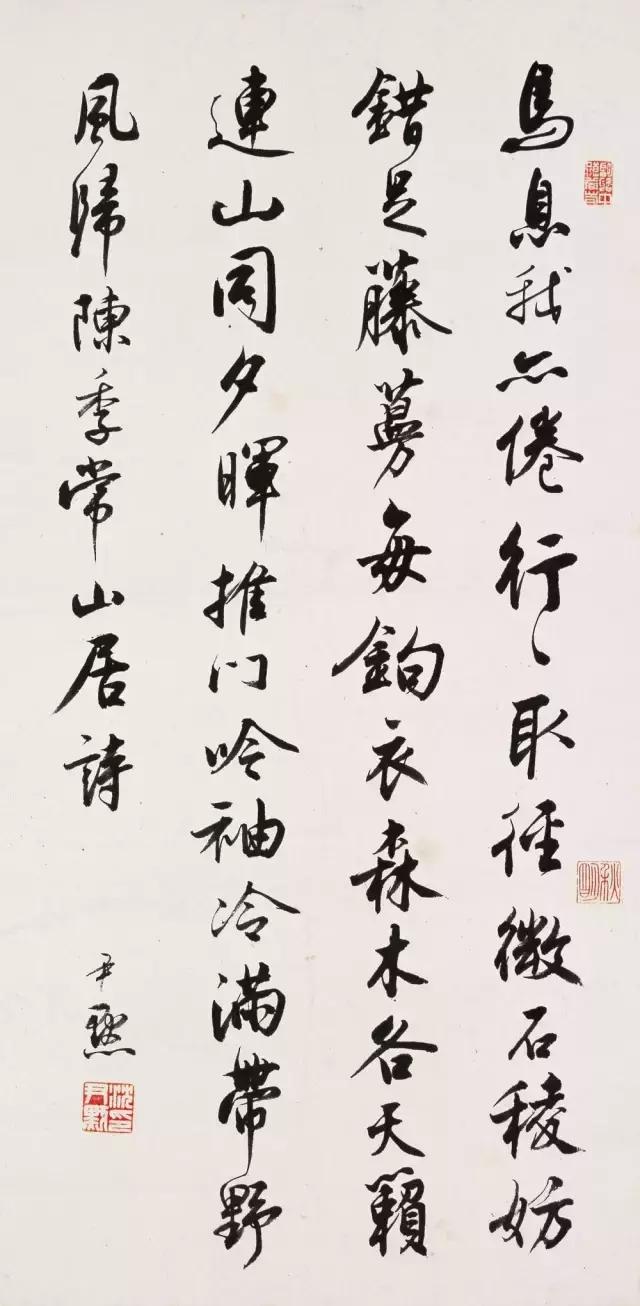 馬息我亦倦行〻取徑微石稜妨
錯足藤蔓每鉤衣森木各天籟
連山同夕暉推门吟袖冷滿帶野
風歸陳季常山居詩
尹默
沈尹默印
秋明